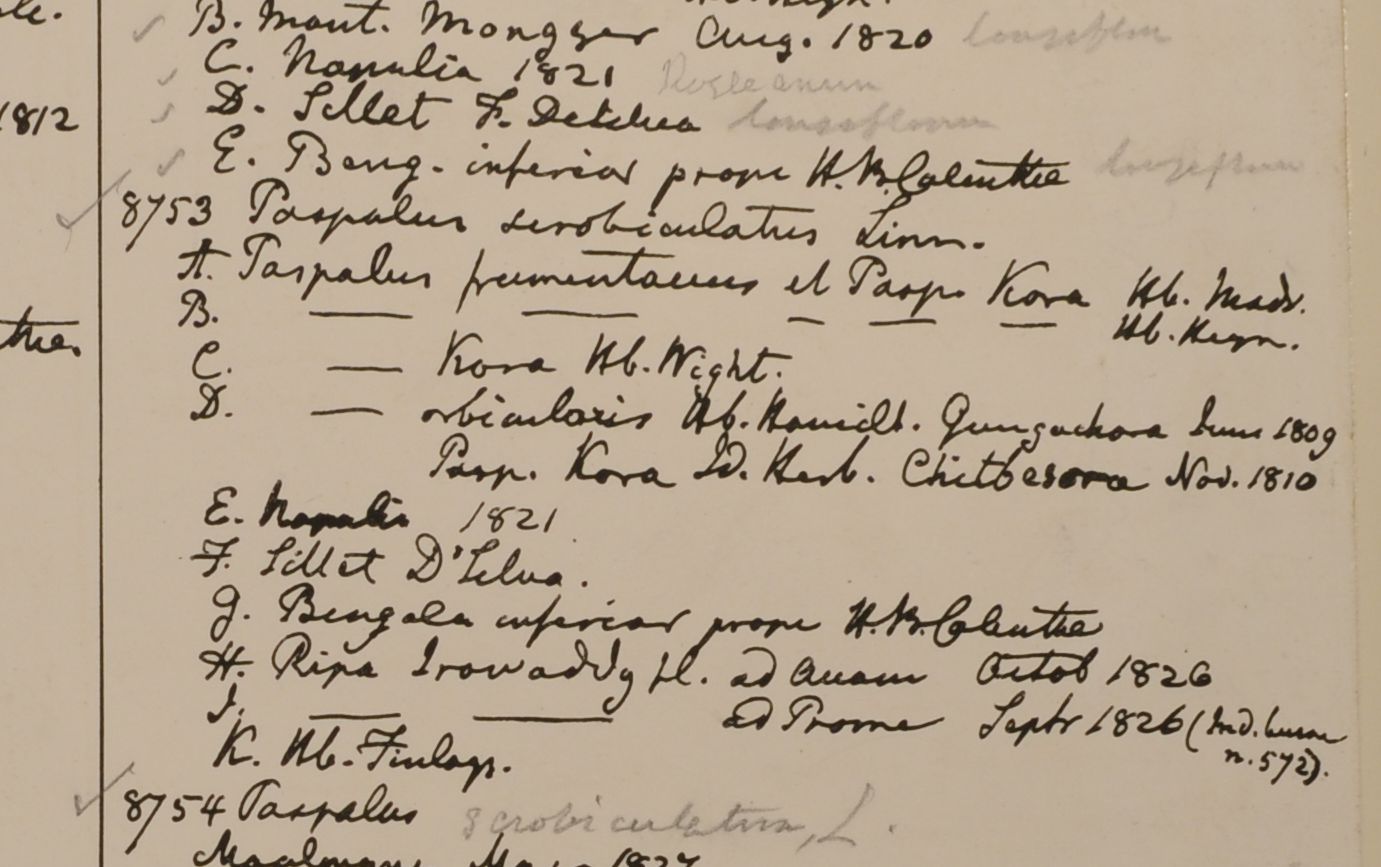 B. Mont. Mongger Aug. 1820 longiflor
C. Napalia 1821 Royleanum
D. Sillet F. De
E. Beng. inferior prope H.B. Calcutta
8753 Paspalus scrobiculatus Linn.
A. Paspalus frumentaceus et Pasp. Kora Hb. Madr.
B. — — — — — Hb. Heyn.
C. — Kora Hb. Wight.
D. — orbicularis Hb. Hamilt. Gungachora Iun 1809
Pasp. Kora Id. Herb. Nov. 1810
E. Napalia 1821
F. Sillet D'Silva.
G. Bengala inferior prope H.B. Calcutta
H. Ripa Irowaddy fl. ad Auam Octob 1826
I. — — ad Prome Septr 1826 (
n. 572).
K. Hb. Finlays.
8754 Paspalus scrobiculatum, L.
1812
1827